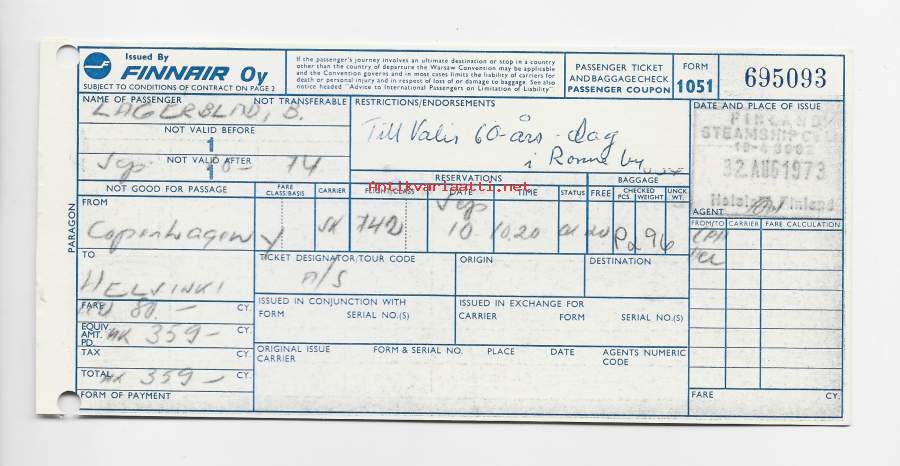 Issued By
FINNAIR Oy
SUBJECT TO CONDITIONS OF CONTRACT ON PAGE 2
If the passenger's journey involves an ultimate destination or stop in a country
other than the country of departure the Warsaw Convention may be applicable
and the Convention governs and in most cases limits the liability of carriers for
death or personal injury and in respect of loss of or damage to baggage. See also
notice headed "Advice to International Passengers on Limitation of Liability"
PASSENGER TICKET
AND BAGGAGE CHECK
PASSENGER COUPON
FORM
1051
695093
NAME OF PASSENGER NOT TRANSFERABLE
LAGERBLAD, B.
NOT VALID BEFORE
1
NOT VALID AFTER
1
Sep 10 - 74
RESTRICTIONS/ENDORSEMENTS
Till Valis 60-års-dag
i Rønne by
DATE AND PLACE OF ISSUE
FINLAND
STEAMSHIP
AUG 1973
Helsinki, Finland
AGENT
RESERVATIONS
BAGGAGE
NOT GOOD FOR PASSAGE
FARE CLASS/BASIS
CARRIER
FLIGHT/CLASS
DATE
TIME
STATUS
FREE
CHECKED PCS. WEIGHT
UNCK. WT.
antikvariaatti.net
FROM
Copenhagen
Y
SK
742
Sep
10
10.20
20
96
FROM/TO CARRIER FARE CALCULATION
CPH
TO
HELSINKI
TICKET DESIGNATOR/TOUR CODE
ORIGIN
DESTINATION
FARE CY.
80.-
ISSUED IN CONJUNCTION WITH
FORM SERIAL NO.(S)
ISSUED IN EXCHANGE FOR
CARRIER FORM SERIAL NO.(S)
EQUIV. AMT. PD. CY.
MK 359-
TAX CY.
ORIGINAL ISSUE
CARRIER
FORM & SERIAL NO. PLACE DATE AGENTS NUMERIC CODE
TOTAL CY.
MK 359-
FORM OF PAYMENT
FARE CY.
PARAGON